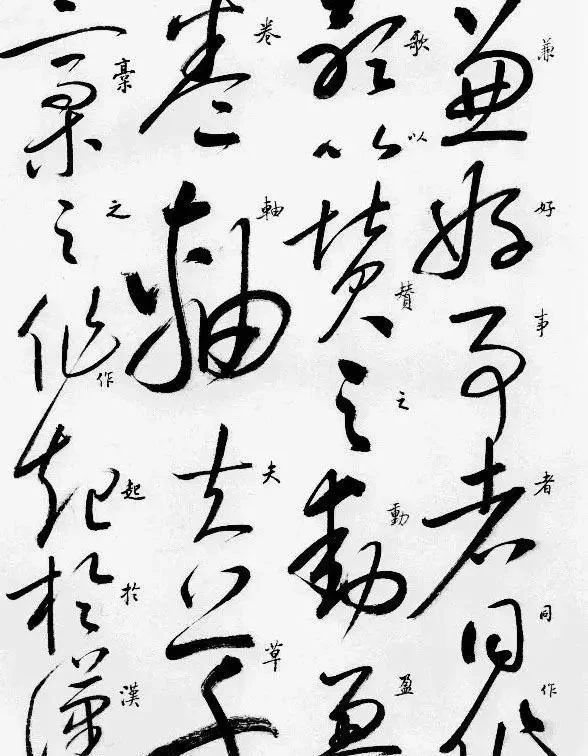 兼好事者同作
歌以贊之動盈
卷軸夫草
稾之作起於漢